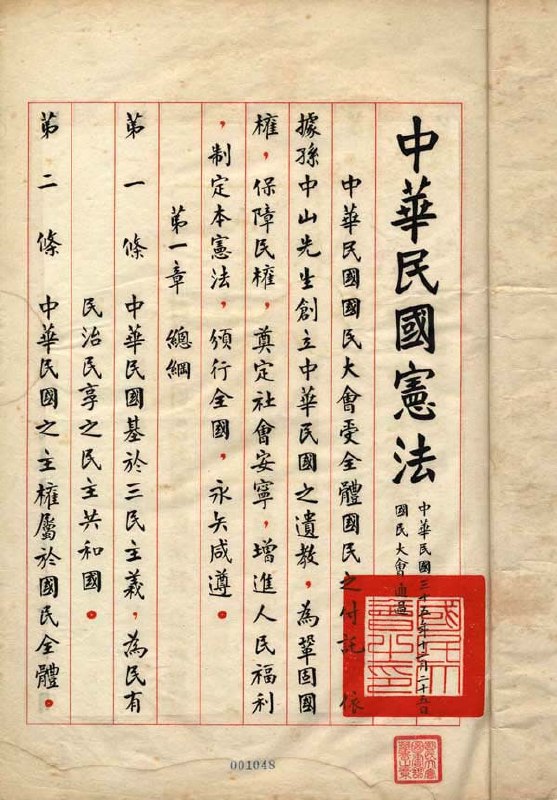 中華民國憲法
中華民國三十五年十二月二十五日
國民大會通過
中華民國國民大會受全體國民之付託,依
據孫中山先生創立中華民國之遺教,為鞏固國
權,保障民權,奠定社會安寧,增進人民福利
,制定本憲法,頒行全國,永矢咸遵。
第一章 總綱
第一條 中華民國基於三民主義,為民有
民治民享之民主共和國。
第二條 中華民國之主權屬於國民全體。
國民大
會之印
001048